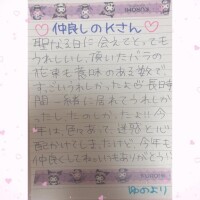 仲良しのKさん
聖なる日に会えてとっても
うれしいし、頂いたバラの
花束も意味のある数で
すごいうれしかったよ♡長時
間一緒に居れてうれしか
ったし、たのしかったよ!!今
年は色々あって、迷惑と心
配かけてしまったけど、今年も
仲良くしてねいつもありがとう♡
ゆめより